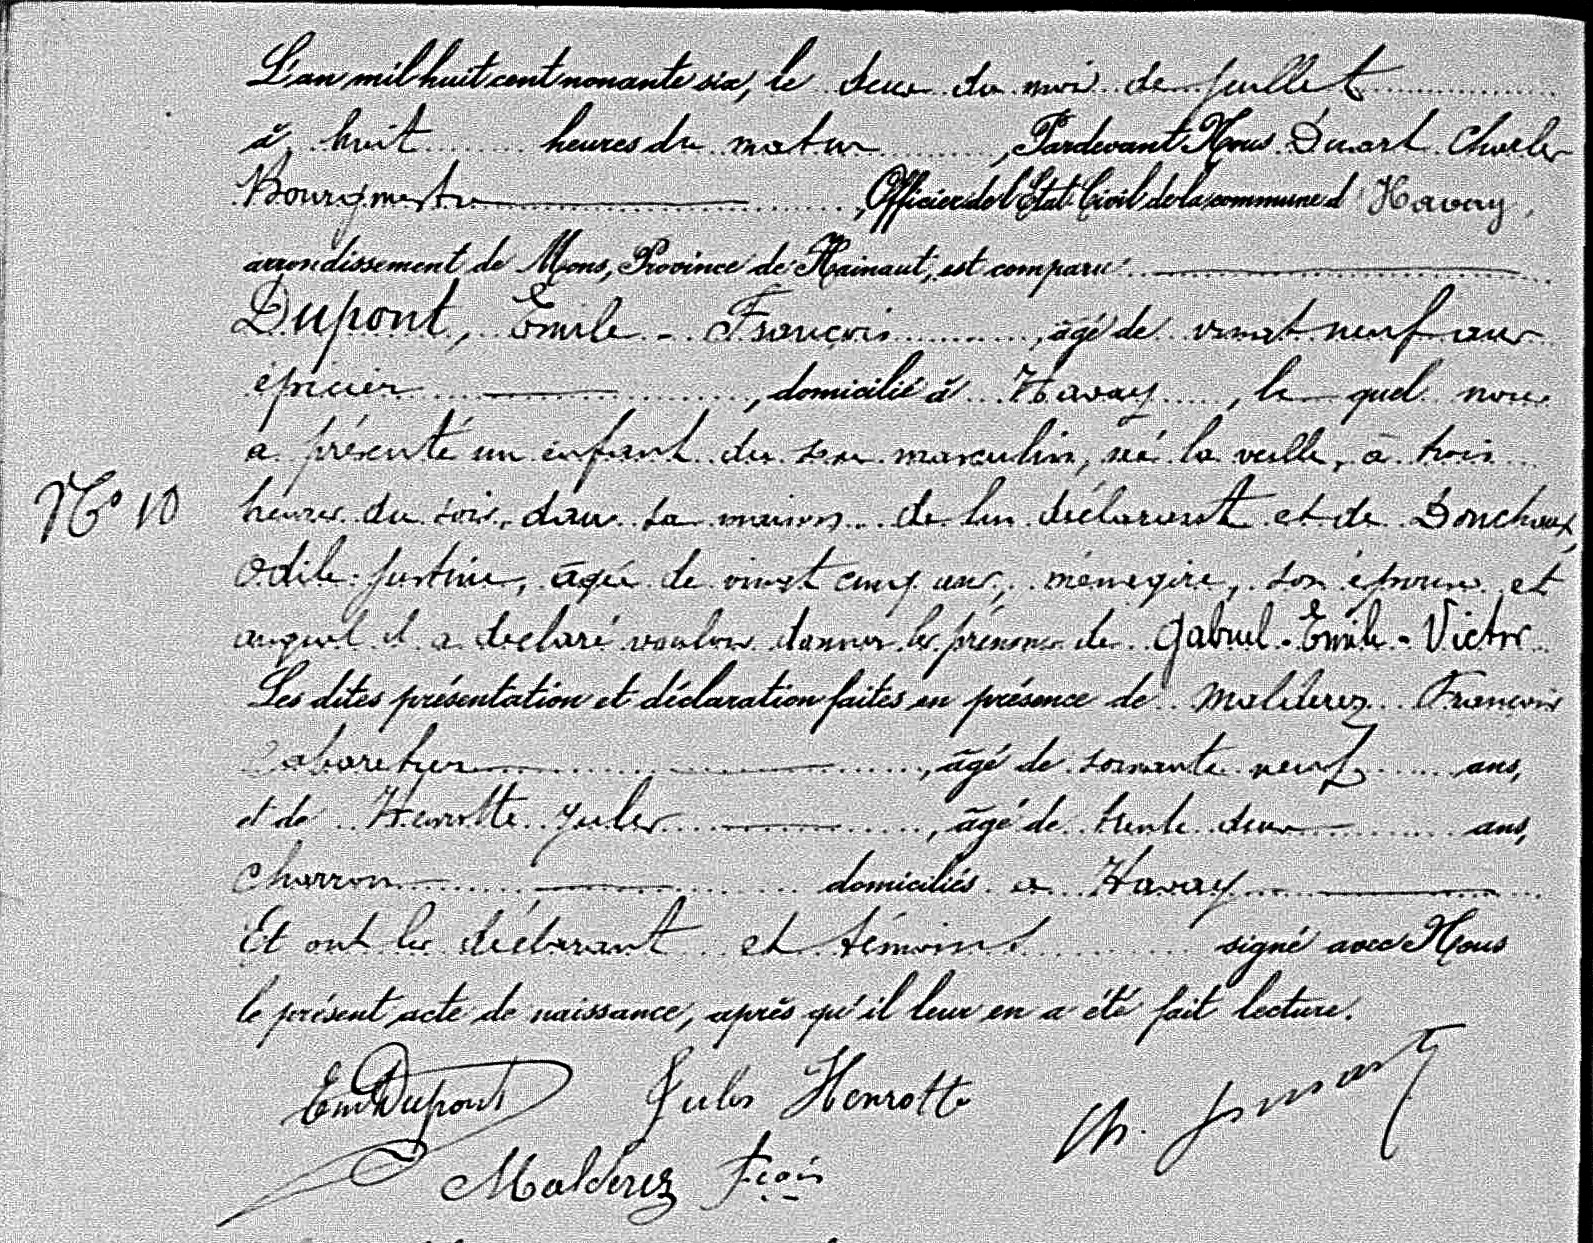 L'an mil huit cent nonante six, le deux du mois de juillet
à huit heures du matin, Pardevant Nous Charles
Bourgmestre, Officier de l'Etat Civil de la commune d'Havay,
arrondissement de Mons, Province de Hainaut, est comparu
Dupont, Emile-François, âgé de vingt neuf ans
épicier, domicilié à Havay, le quel nous
a présenté un enfant du sexe masculin, né la veille, à trois
N° 10
heures du soir, dans sa maison de lui déclarant et de
Odile Justine, âgée de vingt cinq ans, ménagère, son épouse et
auquel il a déclaré vouloir donner les prénoms de Gabriel-Emile-Victor
Les dites présentation et déclaration faites en présence de Malderez François
Cabaretier, âgé de soixante neuf ans,
et de Henrotte Jules, âgé de trente deux ans,
charron domiciliés à Havay
Et ont les déclarant et témoins signé avec Nous
le présent acte de naissance, après qu'il leur en a été fait lecture.
Em Dupont Jules Henrotte
Malderez Fçois